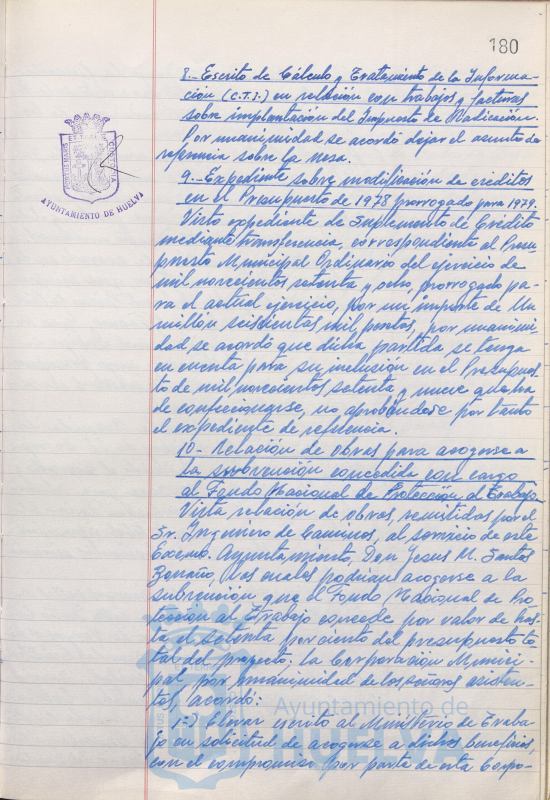 180
8.- Escrito de Cálculo y Tratamiento de la Informa-
ción (C.T.I.) en relación con trabajos y facturas
sobre implantación del Impuesto de Radicación.
Por unanimidad se acordó dejar el asunto de
referencia sobre la mesa.
9.- Expediente sobre modificación de créditos
en el Presupuesto de 1978 prorrogado para 1979.
Visto expediente de Suplemento de Crédito
mediante transferencia, correspondiente al Presu-
puesto Municipal Ordinario del ejercicio de
mil novecientos setenta y ocho, prorrogado pa-
ra el actual ejercicio, por un importe de Un
millón seiscientas mil pesetas, por unanimi-
dad se acordó que dicha partida se tenga
en cuenta para su inclusión en el Presupues-
to de mil novecientos setenta y nueve que ha
de confeccionarse, no aprobándose por tanto
el expediente de referencia.
10- Relación de obras para acogerse a
la subvención concedida con cargo
al Fondo Nacional de Protección al Trabajo
Vista relación de obras, remitidas por el
Sr. Ingeniero de Caminos, al servicio de este
Excmo. Ayuntamiento, Don Jesus M. Santos
los cuales podrían acogerse a la
subvención que el Fondo Nacional de Pro
tección al Trabajo concede por valor de has-
ta el setenta por ciento del presupuesto to-
tal del proyecto; la Corporación Munici-
pal por unanimidad de los señores asisten-
tes, acordó:
1-) Elevar escrito al Ministerio de Traba-
jo en solicitud de acogerse a dichos beneficios,
con el compromiso por parte de esta Corpo-
AYUNTAMIENTO DE HUELVA
Ayuntamiento de
HUELVA